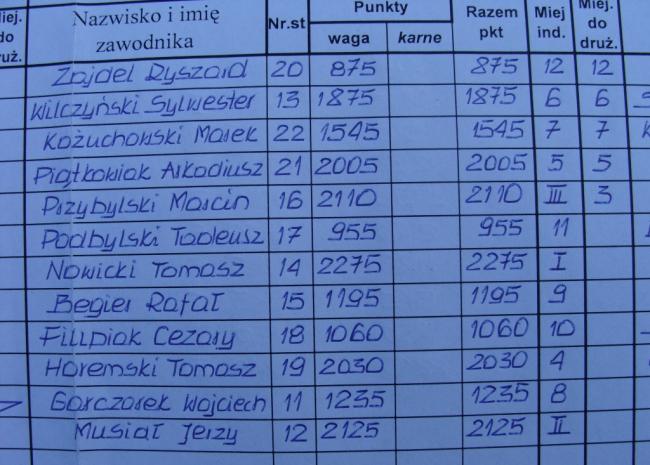 Miej. do druż. Nazwisko i imię zawodnika Nr.st Punkty waga karne Razem pkt Miej ind. Miej. do druż.
Zajdel Ryszard 20 875 875 12 12
Wilczyński Sylwester 13 1875 1875 6 6
Kożuchowski Marek 22 1545 1545 7 7
Piątkowiak Arkadiusz 21 2005 2005 5 5
Przybylski Marcin 16 2110 2110 III 3
Podbylski Tadeusz 17 955 955 11
Nowicki Tomasz 14 2275 2275 I
Begier Rafał 15 1195 1195 9
Filipiak Cezary 18 1060 1060 10
Haremski Tomasz 19 2030 2030 4
Garczarek Wojciech 11 1235 1235 8
Musiał Jerzy 12 2125 2125 II